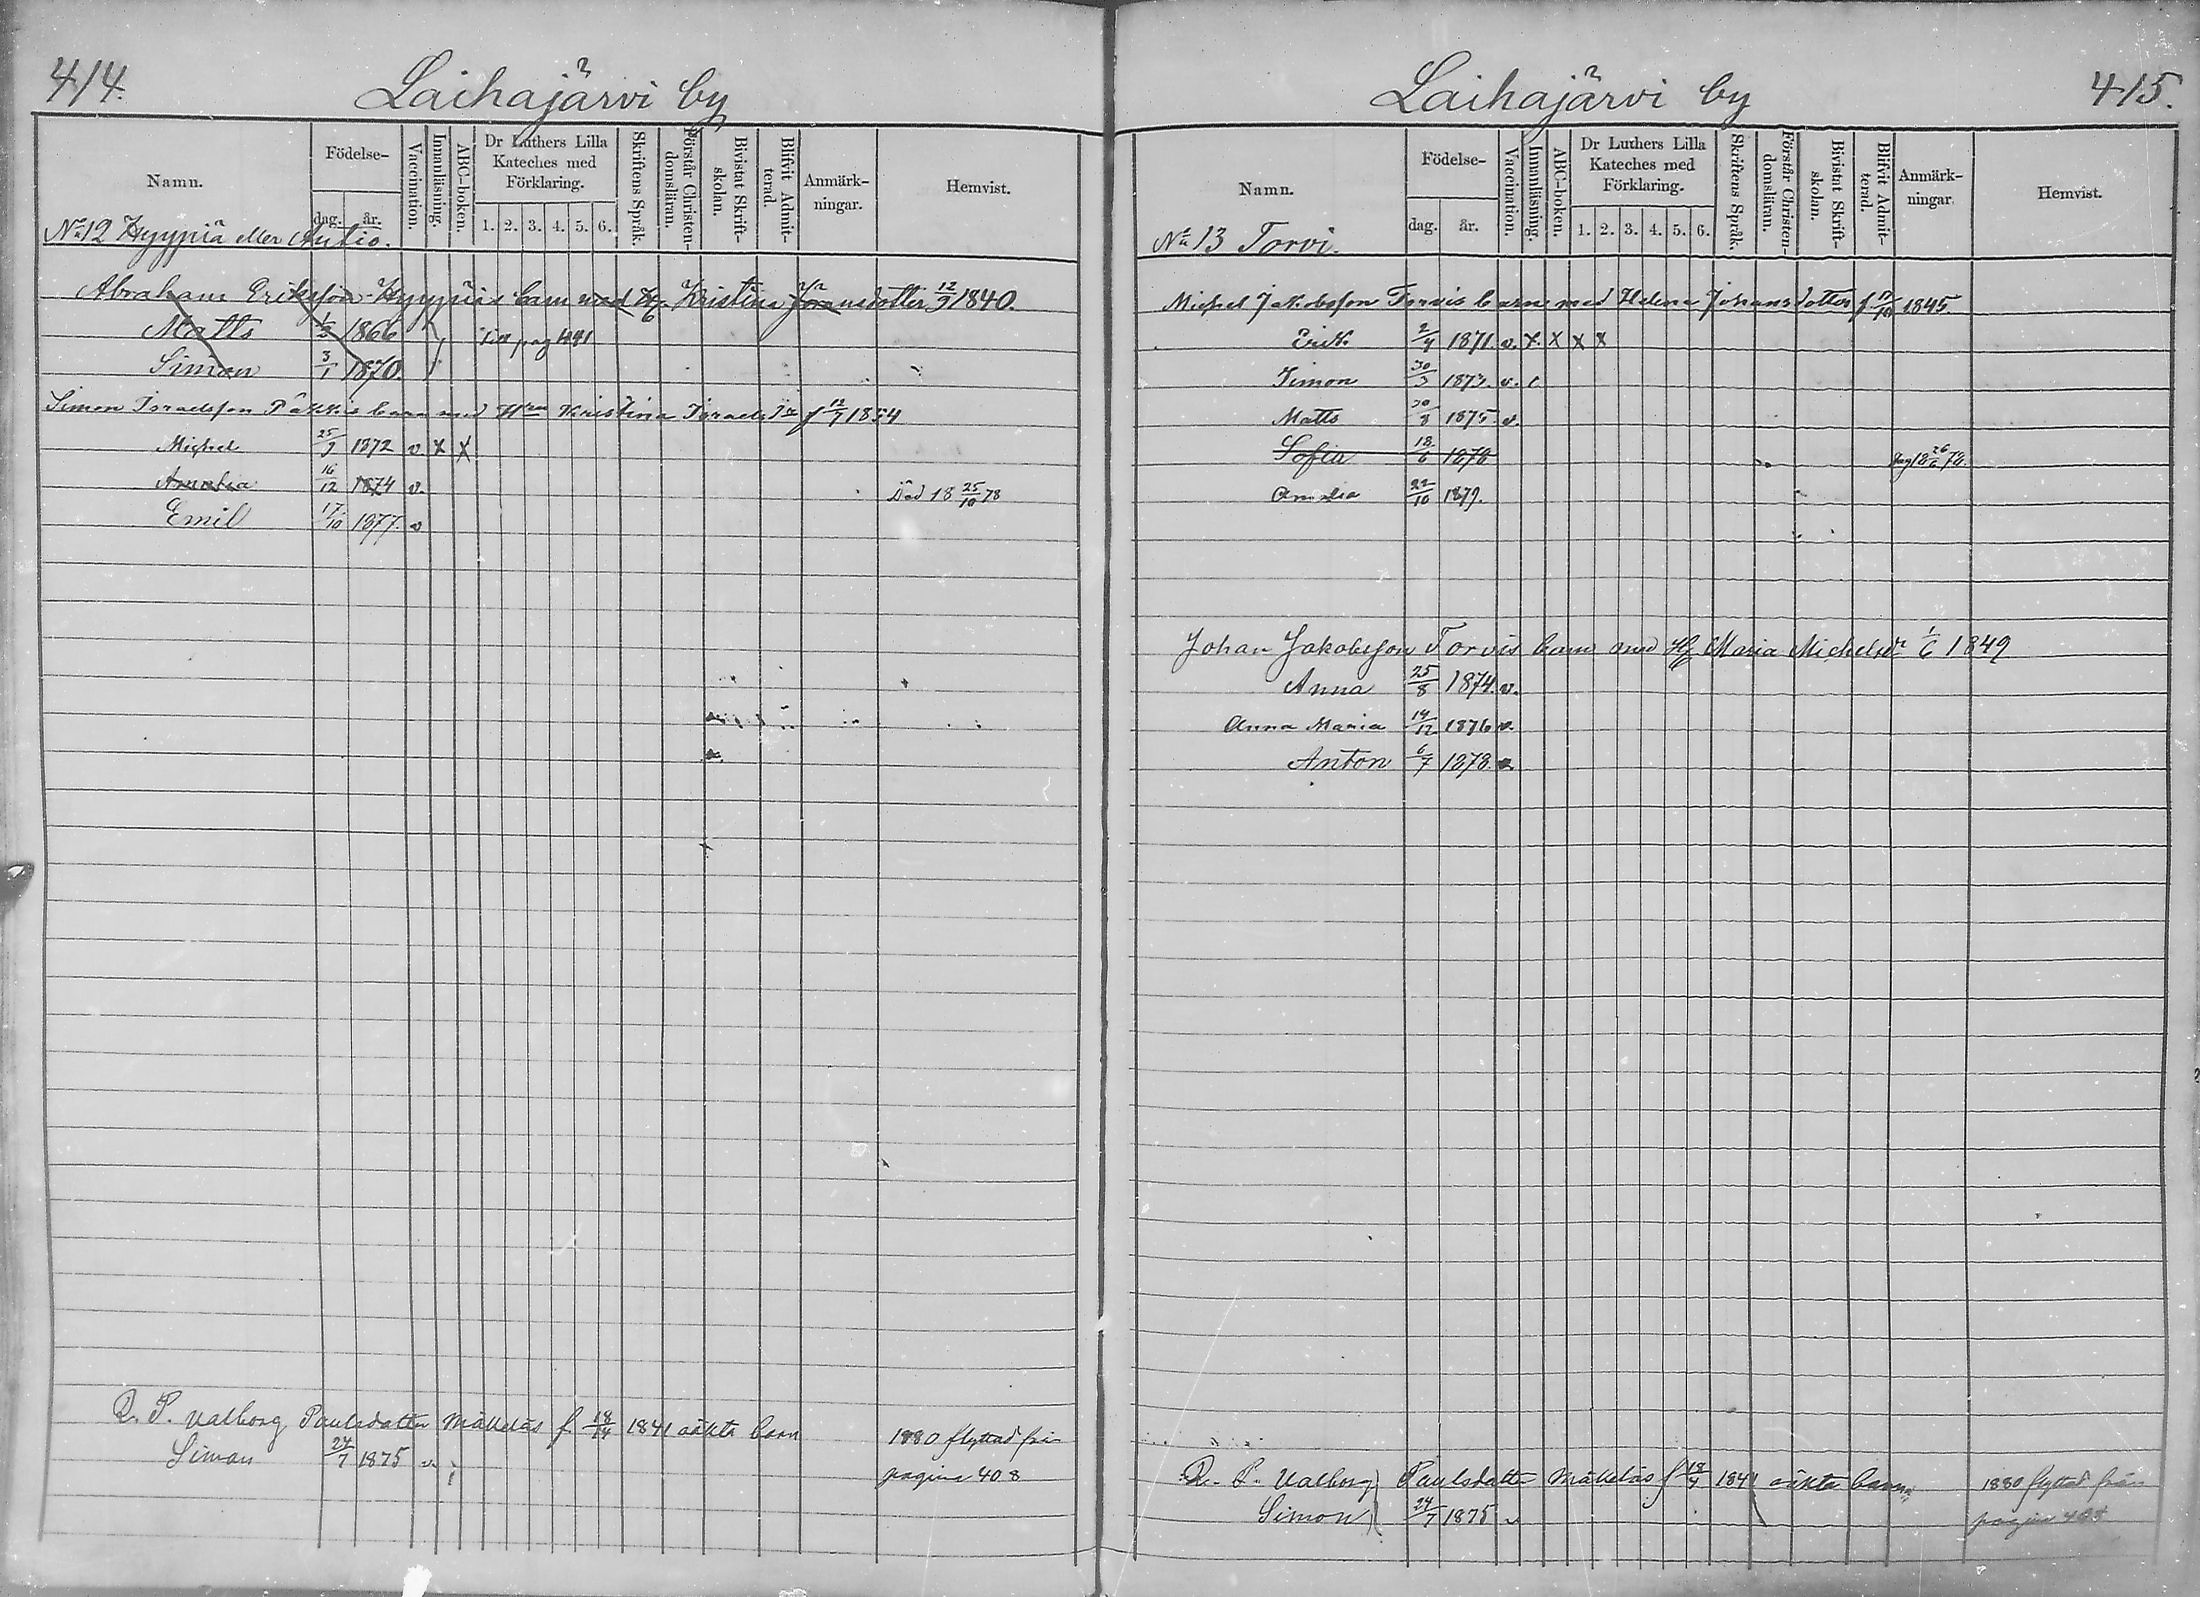 414.
Laihajärvi by
Namn.
Födelse-
dag.
år.
Vaccination.
Innanläsning.
ABC-boken.
Dr Luthers Lilla
Kateches med
Förklaring.
1. 2. 3. 4. 5. 6.
Skriftens Språk.
Förstår Christen-
domsläran.
Bivistat Skrift-
skolan.
Blifvit Admit-
terad.
Anmärk-
ningar.
Hemvist.
No 12 Hyypiä eller Antio.
Abraham Eriksson Hyypiäs barn med Kristina dotter 12/9 1840.
Matts 1866 till pag 491
Simon 3/1 1870.
Simon Israelsson Päkkis barn med Kristina Israelsdr f 12/7 1854
Michel 25/9 1872 v x x
Amalia 16/12 1874 v. Död 18 25/10 78
Emil 17/10 1877. v
R. P. Valborg Paulsdotter Mäkeläs f. 18/4 1841 oäkta barn
1880 flyttad från
Simon 24/7 1875 v
pagina 408
Laihajärvi by
415.
Namn.
Födelse-
dag.
år.
Vaccination.
Innanläsning.
ABC-boken.
Dr Luthers Lilla
Kateches med
Förklaring.
1. 2. 3. 4. 5. 6.
Skriftens Språk.
Förstår Christen-
domsläran.
Bivistat Skrift-
skolan.
Blifvit Admit-
terad.
Anmärk-
ningar.
Hemvist.
No 13 Torvi.
Michel Jakobsson Torvis barn med Helena Johansdotter f 1845.
Erik 2/4 1871. v. x x x x
Simon 30/3 1873. v.
Matts 30/8 1875. v.
Sofia 18/6 1878 18 26/6 78.
Amalia 22/10 1879.
Johan Jakobsson Torvis barn med Maria Michelsdr 1/6 1849
Anna 25/8 1874. v.
Anna Maria 14/12 1876 v.
Anton 6/7 1878. v
R. P. Valborg Paulsdotter Mäkeläs f 18/4 1841 oäkta barn
1880 flyttad från
Simon 24/7 1875 v
pagina 408